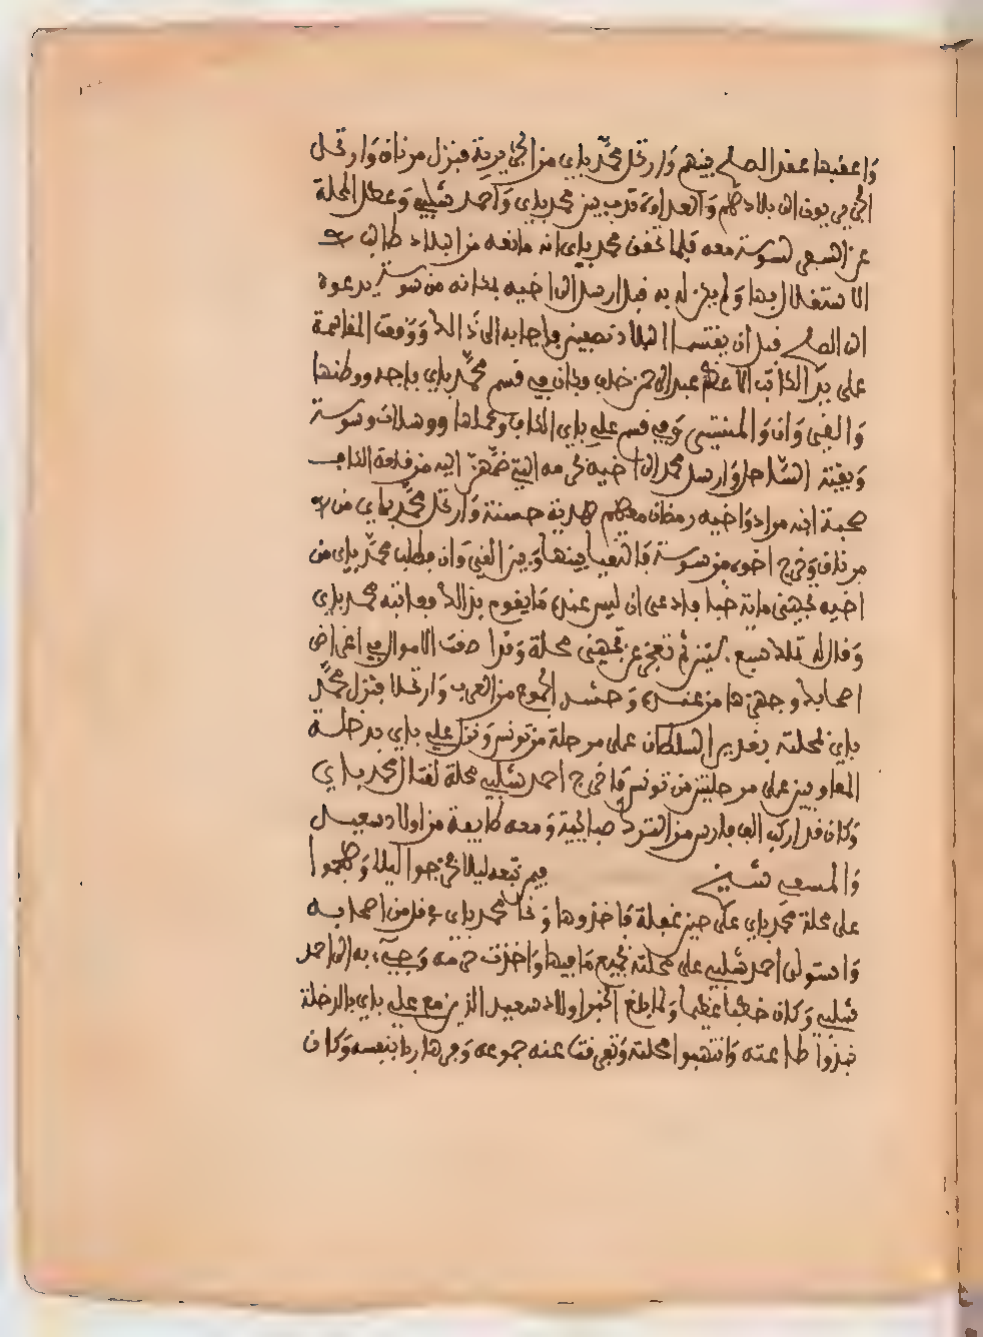 واعقبها عقد الصلح بينهم وارتحل محمد باي من الجزيرية فنزل مرناق وارتحل
الجزيريون الى بلادهم والعداوة قد دب بين محمد باي واحمد شلبي وعطل المحلة
عن السعي لسوسة معه فلما تحقق محمد باي انه مانعه من البلاد طالب
الاستقلال بها ولم يكن له به قبل ارسل الى اخيه بمكانه من سوسة يدعوه
الى الصلح قبل ان يقتسما البلاد نصفين فاجابه الى ذالك ووقعت المقاسمة
على يد الكاتب الاعظم عبد الرحمن خلف وكان في قسم محمد باي باجة ووطنها
والقيروان والمنستير وفي قسم علي باي الكاف وعملها ووسلات وسوسة
وبقية الساحل وارسل محمد الى اخيه حرمه التي ضمهن اليه من قلعة الكاف
صحبة ابنه مراد واخيه رمضان معهم هدية حسنة وارتحل محمد باي من
مرناق وخرج اخوه من سوسة فالتقيا بينها وبين القيروان فطلب محمد باي من
اخيه تجهيز مائة خبا فادعى ان ليس عنده ما يقوم بذالك فعاتبه محمد باي
وقال له تملك سبع سنين ثم تعجز عن تجهيز محلة وقد صرفت الاموال في اغراض
اصحابك وجهزها من عنده وحشد الجموع من العرب وارتحلا فنزل محمد
باي بمحلته بغدير السلطان على مرحلة من تونس ونزل علي باي برحلة
المعاويين على مرحلتين من تونس فاخرج احمد شلبي محلة لقتال محمد باي
وكان قد اركب الف فارس من الترك صبايحية ومعه طايفة من اولاد سعيد
والمسعي شيخ فيمن تبعه ليلا فخرجوا ليلا وهجموا
على محلة محمد باي على حين غفلة فاخذوها ونجا محمد باي في فل من اصحابه
واستولى احمد شلبي على محلته بجميع ما فيها واخذت حرمه وجيء به الى احمد
شلبي وكان خطبا عظيما ولما بلغ الخبر اولاد سعيد الذين مع علي باي بالرحلة
نبذوا طاعته وانتهبوا محلته وتفرقت عنه جموعه وفر هاربا بنفسه وكان